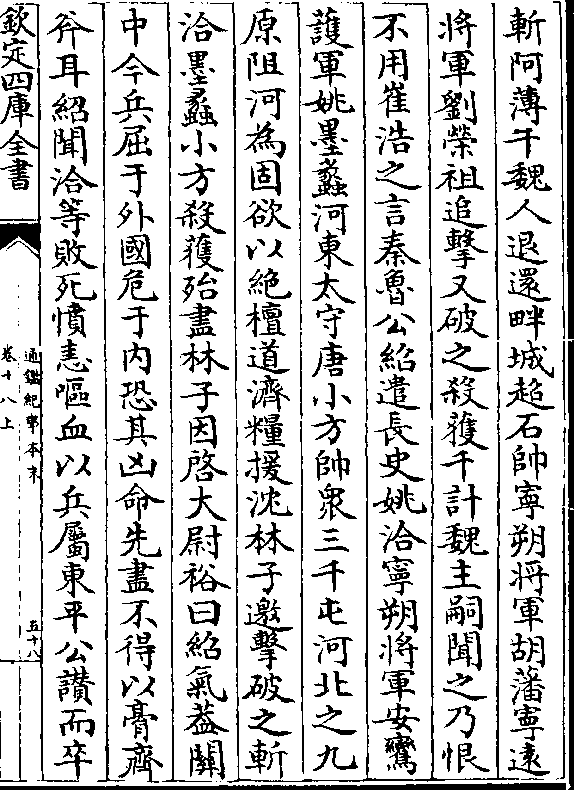 斬阿薄干魏人退還畔城超石帥寧朔將軍胡藩寧遠
將軍劉榮祖追擊又破之殺獲千計魏主嗣聞之乃恨
不用崔浩之言秦魯公紹遣長史姚洽寧朔將軍安鸞
護軍姚墨蠡河東太守唐小方帥衆三千屯河北之九
原阻河為固欲以絶檀道濟糧援沈林子邀擊破之斬
洽墨蠡小方殺獲殆盡林子因啓太尉裕曰紹氣葢關
中今兵屈于外國危于内恐其凶命先盡不得以膏齊
斧耳紹聞洽等敗死憤恚嘔血以兵屬東平公讃而卒
欽定四庫全書
通鑑紀事本末
卷十八上
五十八